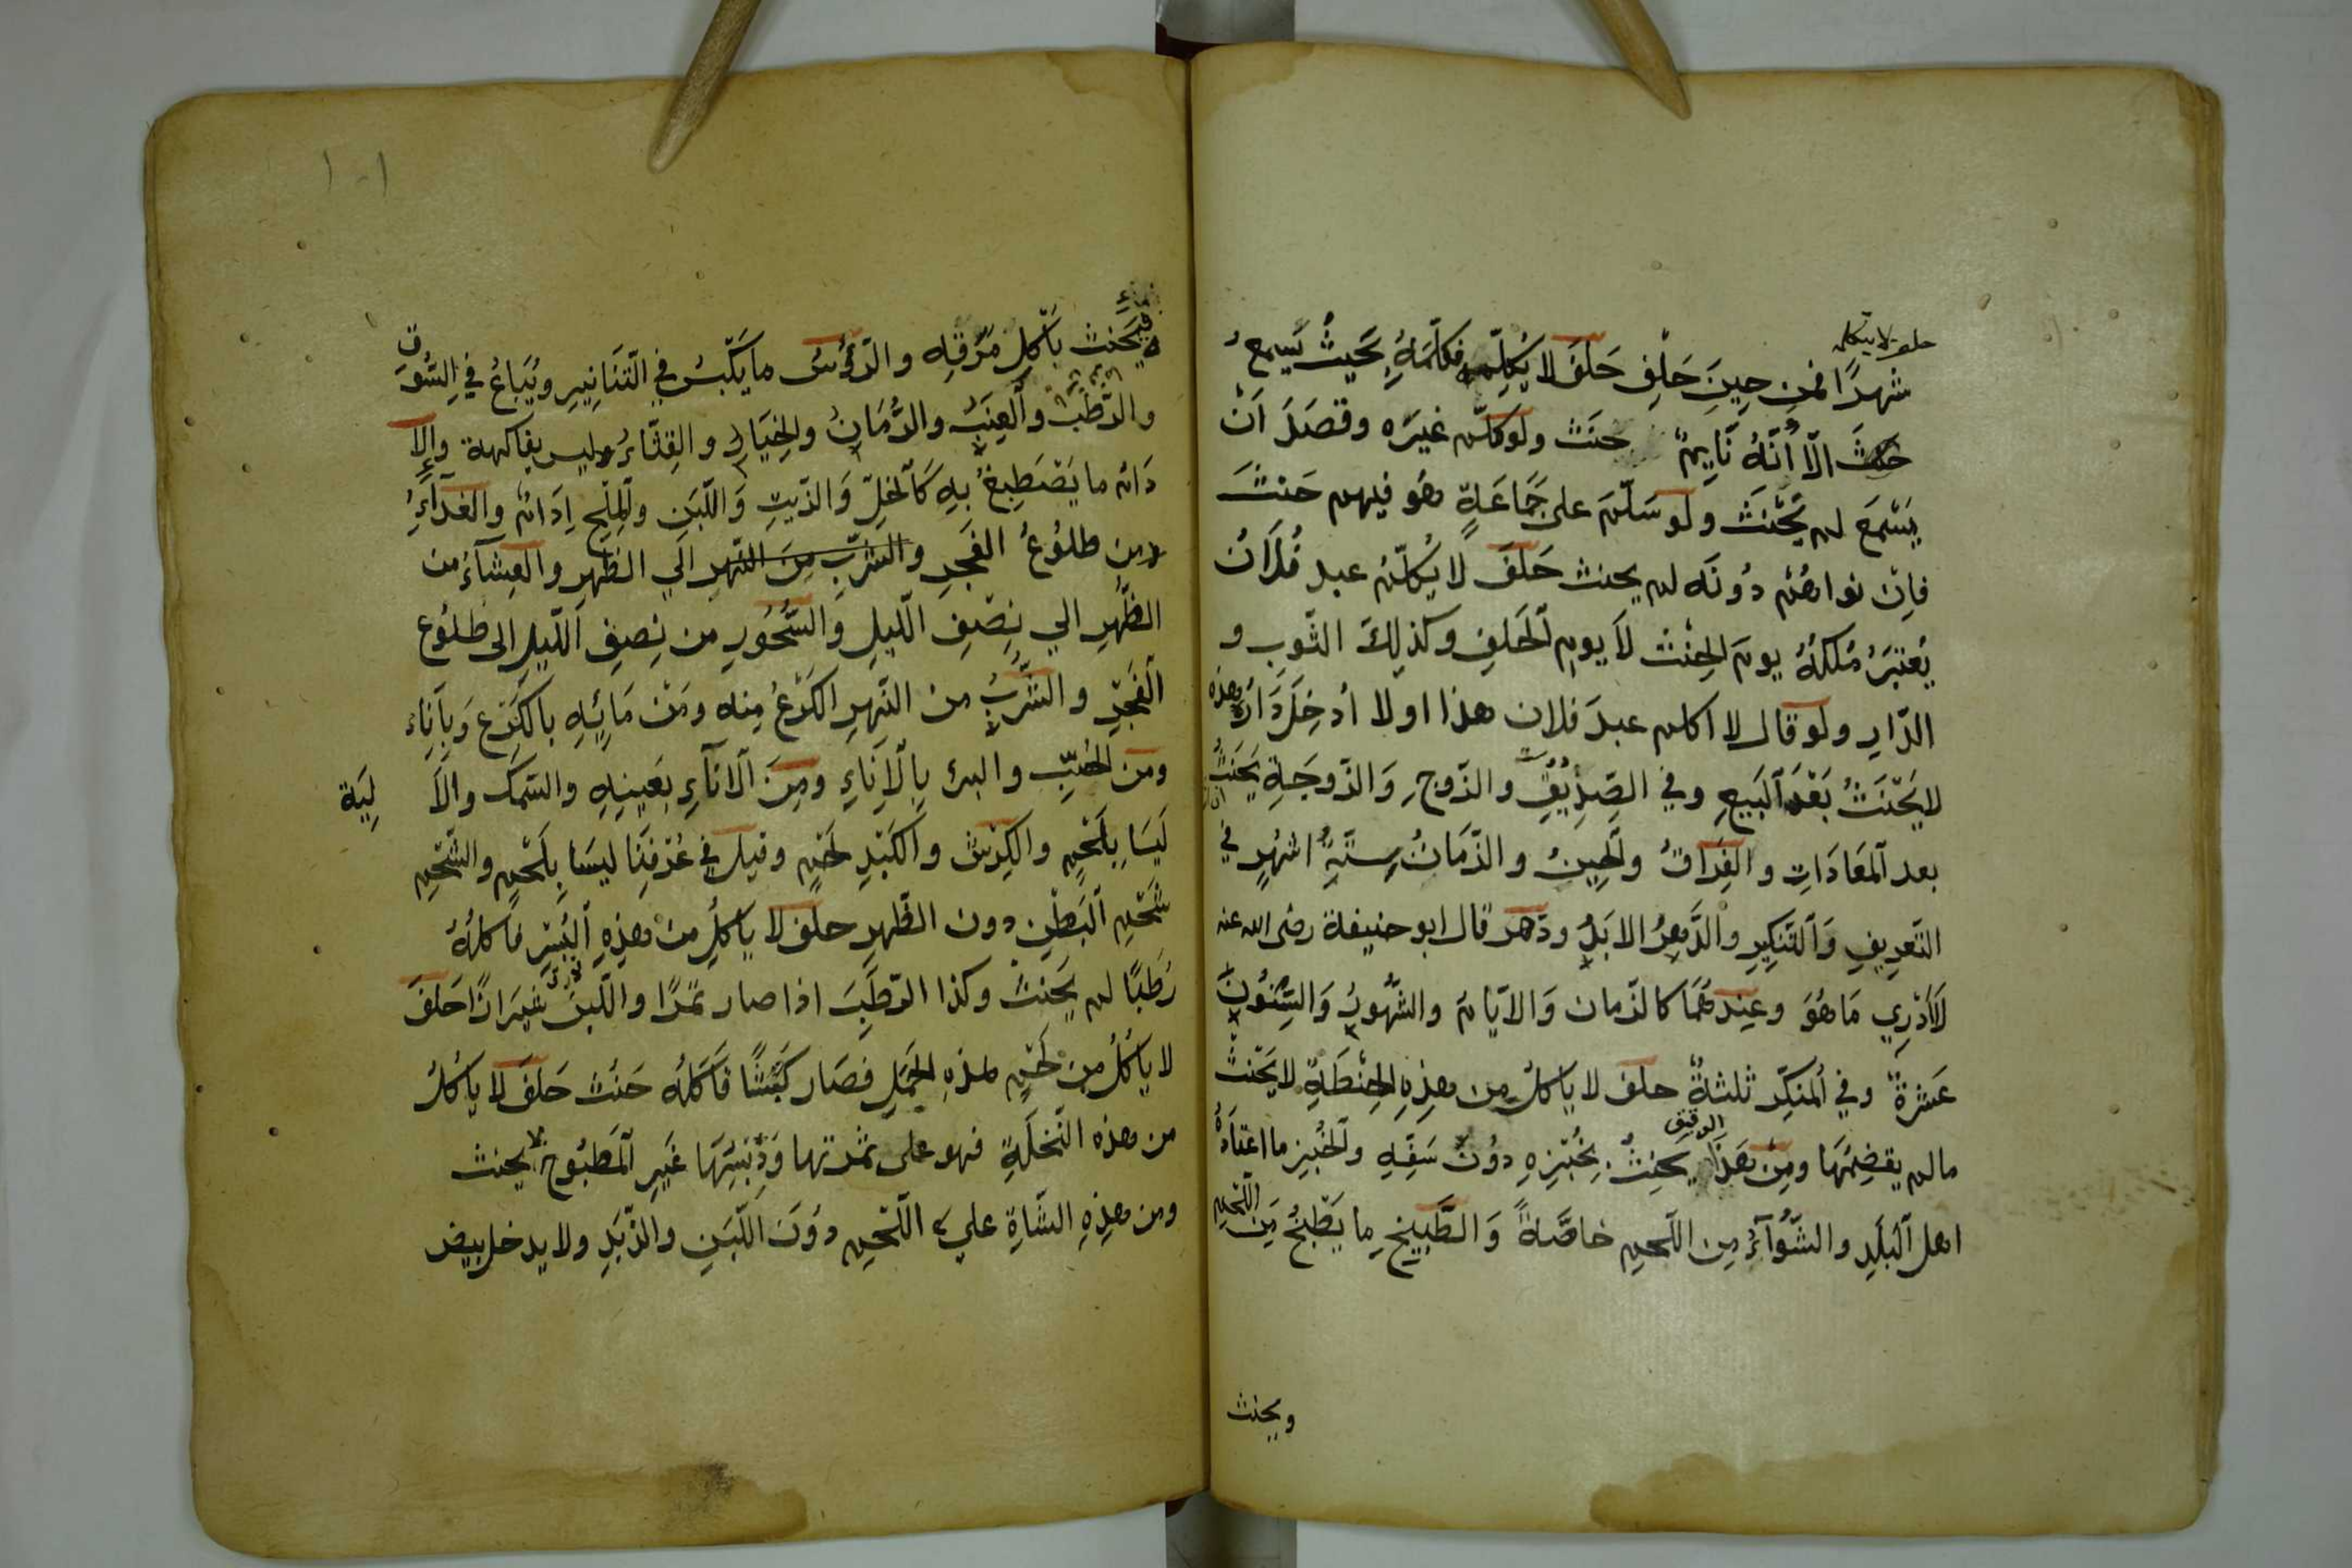 حلف لا يتكلم
شهرًا فمن حِينَ حَلْفِ حَلَفَ لا يُكَلِّمه فَكلّمَهُ بِحَيثُ يَسمعُ
حنث الّا أَنَّهُ نَايِمٌ حنَث ولو كلّم غيرَه وقصَدَ اَنْ
يَسْمَعَ لم يَحْنَث ولو سَلّمَ على جَمَاعَةٍ هو فيهم حَنثَ
فاِن نواهُم دُونَه لم يحنث حَلفَ لا يُكلّمُ عبد فُلَانٍ
يُعْتَبَرُ مُلكهُ يومَ الحِنْث لَا يومِ الحَلفِ وكذلِكَ الثّوبِ و
الدّارِ ولو قال لا اكلم عبدَ فلان هذا او لا أدخِلَ دَارَه هذه
لا يَحْنَثُ بَعْدَ البَيعِ وفي الصّدِيقِ والزّوجِ وَالزّوجَةِ يَحْنَثُ
بعد المعَادَاتِ والفِرَاقُ والحِينُ والزّمَانُ سِتّةُ اشهُرٍ في
التّعرِيفِ وَالتّنكِيرِ والدَّهرُ الابَدُ ودَهر قال ابو حنيفة رضى الله عنه
لَا اَدْرِي مَا هُوَ وعِندهُمَا كالزّمان وَالايّامُ والشّهُورُ وَالسِّنُونَ
عَشرةٌ وفي المنكّر ثلثةٌ حلف لا ياكلُ من هذِهِ الحِنْطَةِ لا يَحْنث
مالم يقضِمْهَا ومِن هَذَا الدقيق يحنِثُ بِخُبْزِهِ دوُنَ سَفِّهِ والخُبز ما اعتادَهُ
اهل البَلَدِ والشّوآءُ مِن اللّحمِ خاصّةً وَالطَّبِيخِ ما يَطْبَخُ مِنَ اللّحمِ
ويحنث
١٠١
فيَحنث بأكلِ مَرَقِهِ والرّؤسُ ما يَكَبّسُ في التّنَانِيرِ ويُبَاعُ في السُّوق
والرّطَبُ والعِنَبُ والرُّمَانُ والخِيَارُ والقِثّاءُ وليس بفاكهة والإ
دَامُ ما يَصْطَبِغُ بِهِ كَالخلِّ وَالزّيتِ وَاللّبَنِ والمِلحِ اِدَامٌ والغدآءِ
من طلوُعُ الفَجرِ والشربِ مِنَ النّهرِ الي الظّهرِ والعِشآءُ من
الظّهرِ الي نِصْفِ اللّيلِ وَالسُّحُورِ من نِصفِ اللّيلِ الى طلُوعِ
الفَجْرِ والشّربُ من النّهرِ الكَرْعُ مِنه ومَنْ مَائِهِ بالكَرْعِ وَبِآنَاء
ومن الجُبّ والبئر بِالْاِنَاءِ ومِنَ الْانآءِ بعَينِهِ والسّمَك والاَلِيَة
لَيسَا بِلَحْمٍ والكِرْش والكَبْدِ لَحْم وقيل في عُرْفِنَا ليسَا بِلَحْمٍ والشّحْم
شَحْمِ البَطْنِ دون الظّهرِ حلف لا ياكلُ من هذِهِ البُسْرِ فاكلهُ
رُطَبًا لم يَحنثْ وكذا الرّطَبَ اذا صار تمرًا واللّبنُ شيرازًا حَلفَ
لا ياكلُ مِن لَحْمِ هذِهِ الحَمَلِ فصَار كَبْشًا فَاَكَلهُ حَنث حَلفَ لا ياكلُ
من هذه النّخلَةِ فهو على ثمرتها وَدِبْسِهَا غَيرِ المَطبُوخِ لا يحنث
ومن هذِهِ الشّاةِ علي اللّحْمِ دوُنَ اللّبَنِ والزّبَدِ ولا يدخل بيض